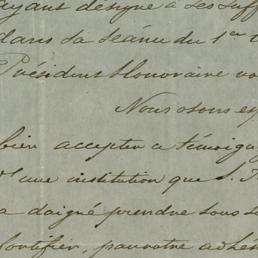 ayant désigné à ses suff
dans sa séance du 1er
Président Honoraire vo
Nous osons esp
bien accepter ce témoig
d'une institution que S.
a daigné prendre sous s
fortifier, par votre adhés